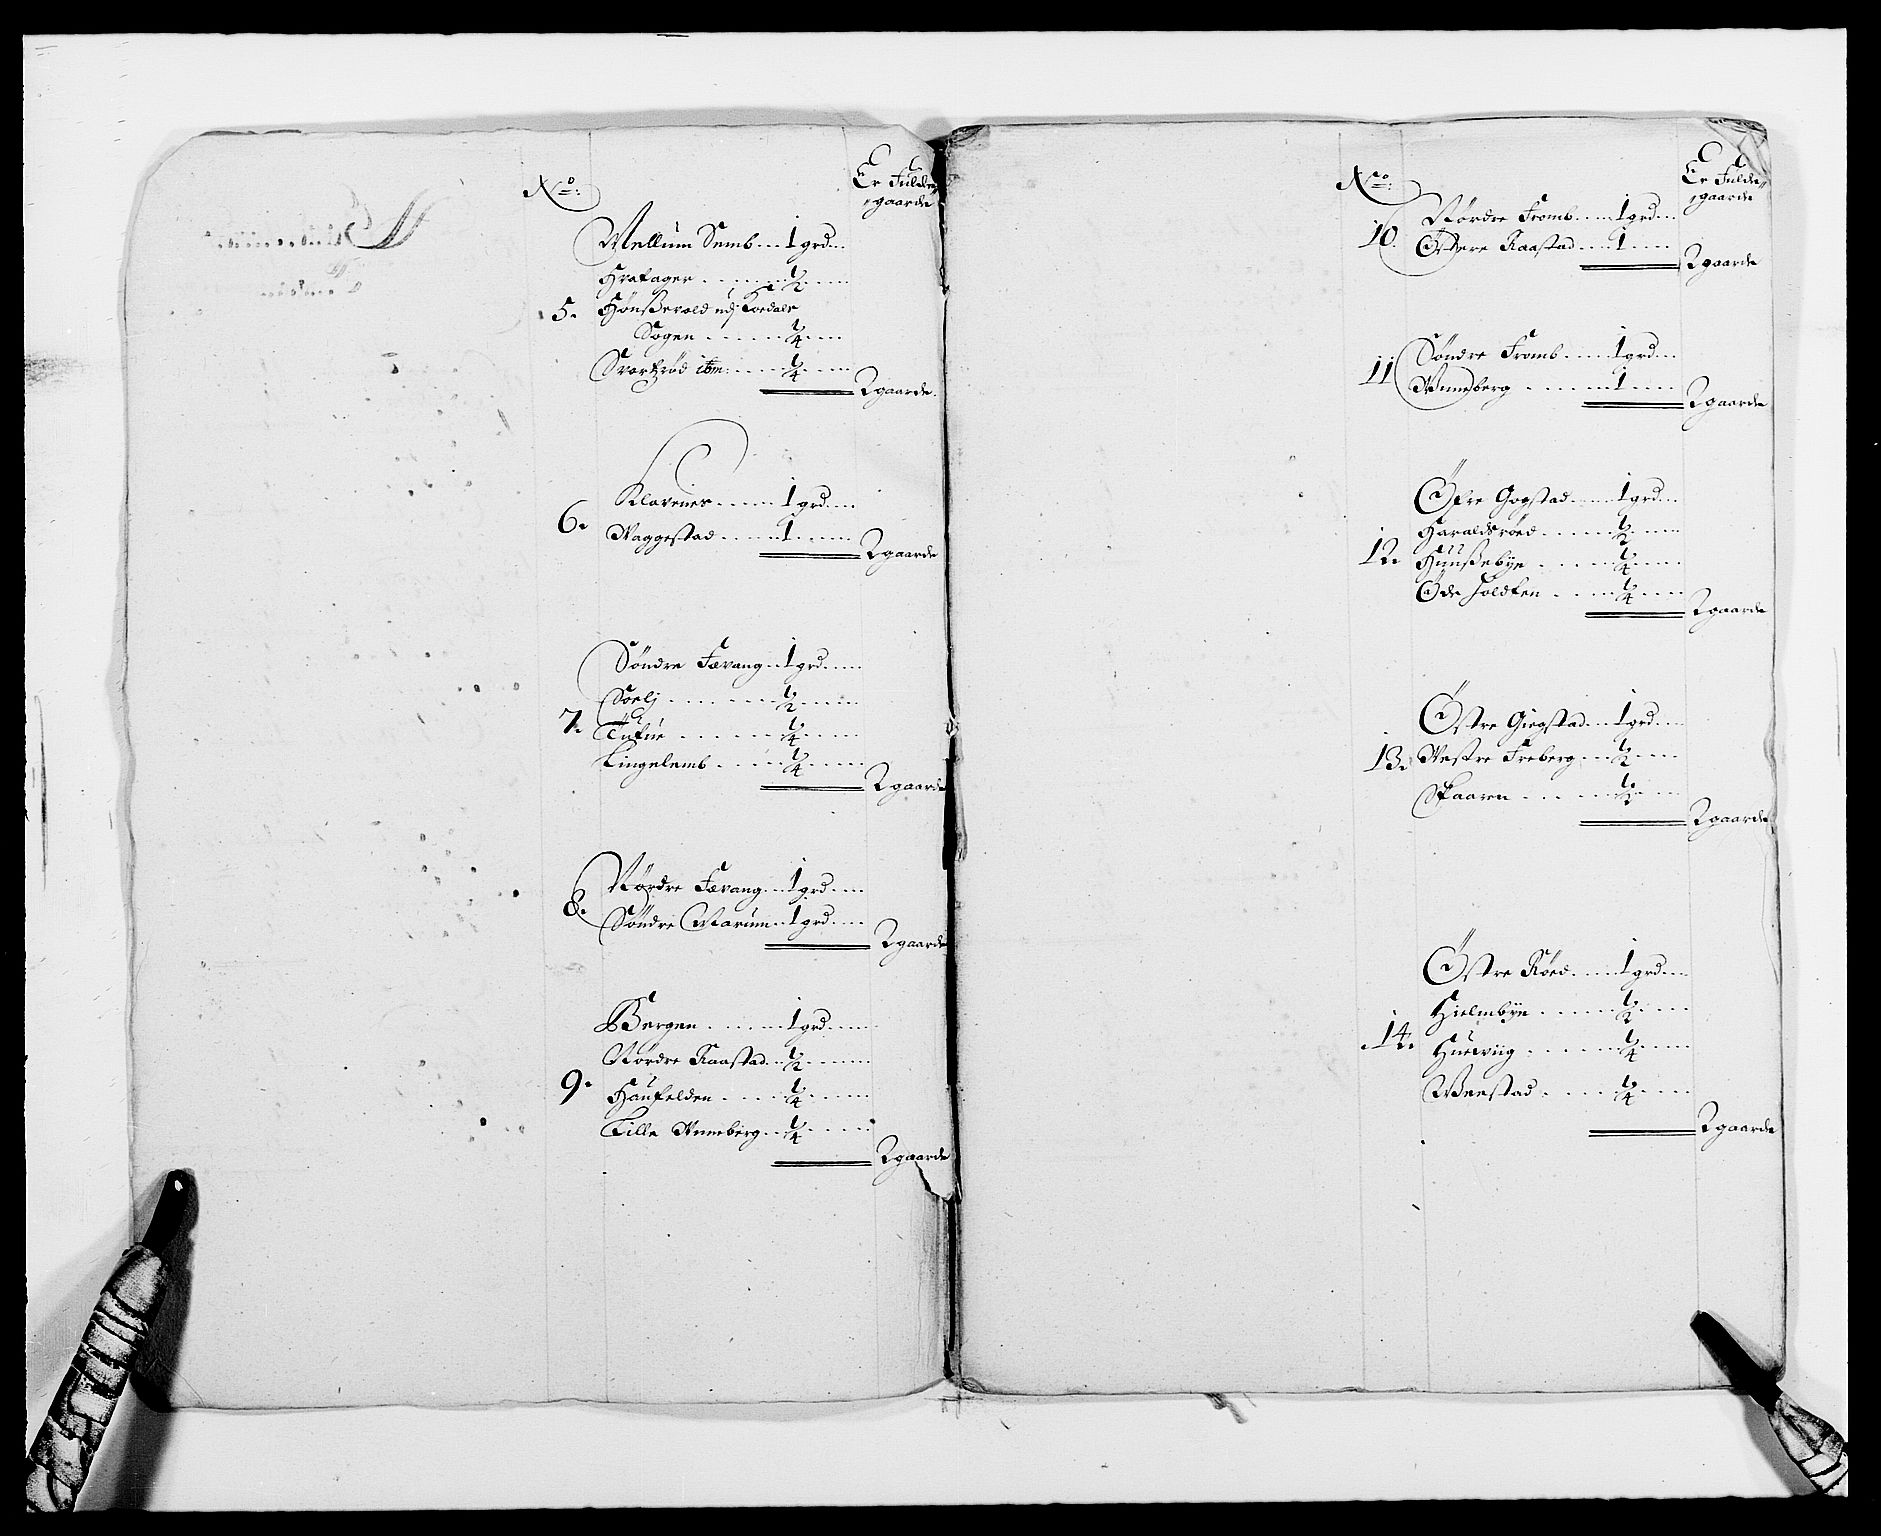 No: Er Fulde
gaarde
Mellum Semb 1 grd
Hrafager ½
5. Hønssevold udj Kodals
Sogen ¼
Svartzrød ibm: ¼
2 gaarde
Klavenes 1 grd
6. Vaggestad 1
2 gaarde
Søndre Fævang 1 grd
Soelj ½
7. Tufue ¼
Lingelemb ¼
2 gaarde
Nørdre Fævang 1 grd
8. Søndre Marum 1 grd
2 gaarde
Bergen 1 grd
Nørdre Raastad ½
9. Haufelden ¼
Lille Vnneberg ¼
2 gaarde
No: Er Fulde
gaarde
Nørdre Fromb 1 grd
10. Østere Raastad 1
2 gaarde
Søndre Fromb 1 grd
11 Vnneberg 1
2 gaarde
Øfre Gogstad 1 grd
Haraldsrøed ½
12. Hunssebye ¼
Øde Holdken ¼
2 gaarde
Østre Giegstad 1 grd
13. Vestre Freberg ½
Skaaren ½
2 gaarde
Østre Røed 1 grd
Hielmbye ½
14. Huewiig ¼
Weestad ¼
2 gaarde